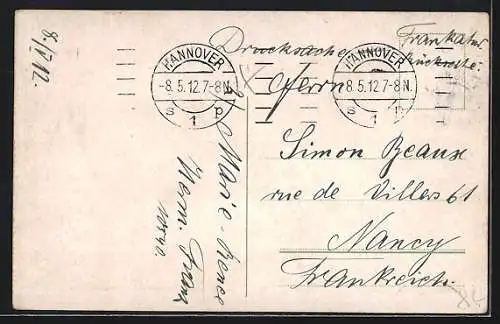 8/V.12.
Drucksache
Frankatur
Rückseite.
HANNOVER
-8.5.12.7-8N.
s 1 p
HANNOVER
8.5.12.7-8N.
s 1 p
Herrn
Simon Beaux
rue de Villers 61
Nancy
Frankreich.
Marie-Renée
Herm. Franz